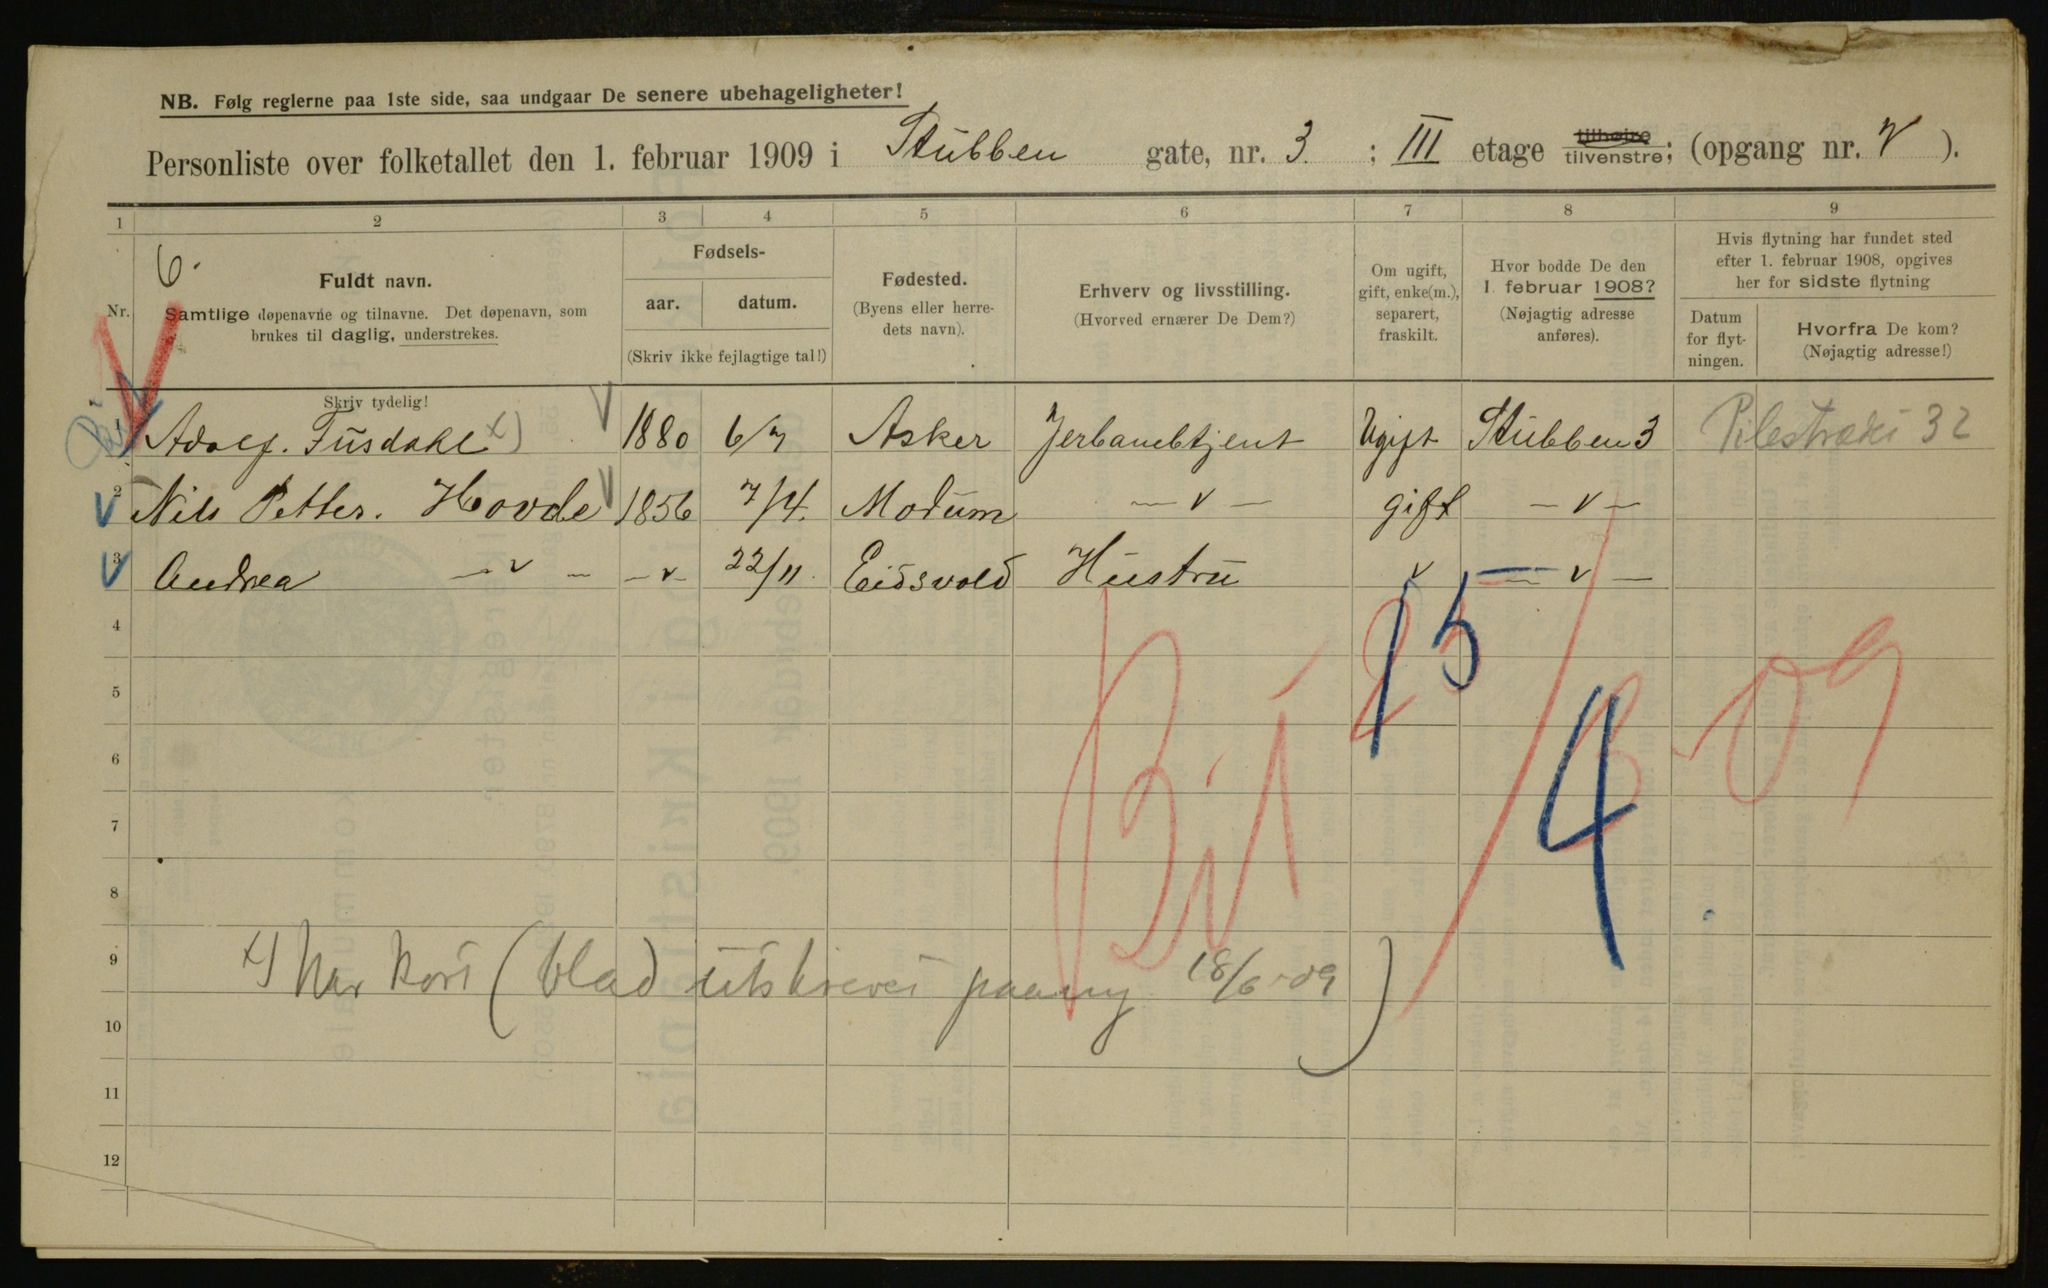 NB. Følg reglerne paa 1ste side, saa undgaar De senere ubehageligheter!
Personliste over folketallet den 1. februar 1909 i Stubben gate, nr. 3 ; III etage tilhøire tilvenstre; (opgang nr. V ).
1 2 3 4 5 6 7 8 9
6.
Nr.
Fuldt navn.
Samtlige døpenavne og tilnavne. Det døpenavn, som
brukes til daglig, understrekes.
Fødsels-
aar. datum.
(Skriv ikke fejlagtige tal!)
Fødested.
(Byens eller herre-
dets navn).
Erhverv og livsstilling.
(Hvorved ernærer De Dem?)
Om ugift,
gift, enke(m.),
separert,
fraskilt.
Hvor bodde De den
1. februar 1908?
(Nøjagtig adresse
anføres).
Hvis flytning har fundet sted
efter 1. februar 1908, opgives
her for sidste flytning
Datum
for flyt-
ningen.
Hvorfra De kom?
(Nøjagtig adresse!)
Skriv tydelig!
1 Adolf. Fusdahl x) 1880 6/7 Asker Jerbanebtjent Ugift Stubben 3 Pilestræde 32
2 Nils Petter. Hovde 1856 7/4. Modum — v — gift — v —
3 Andrea — v — — v — 22/11. Eidsvold Hustru v — v —
4
5
6
7
8
9
10
11
12
Bi 23/8-09
15/4
x) har kort (blad utskrevet paany 18/6-09)